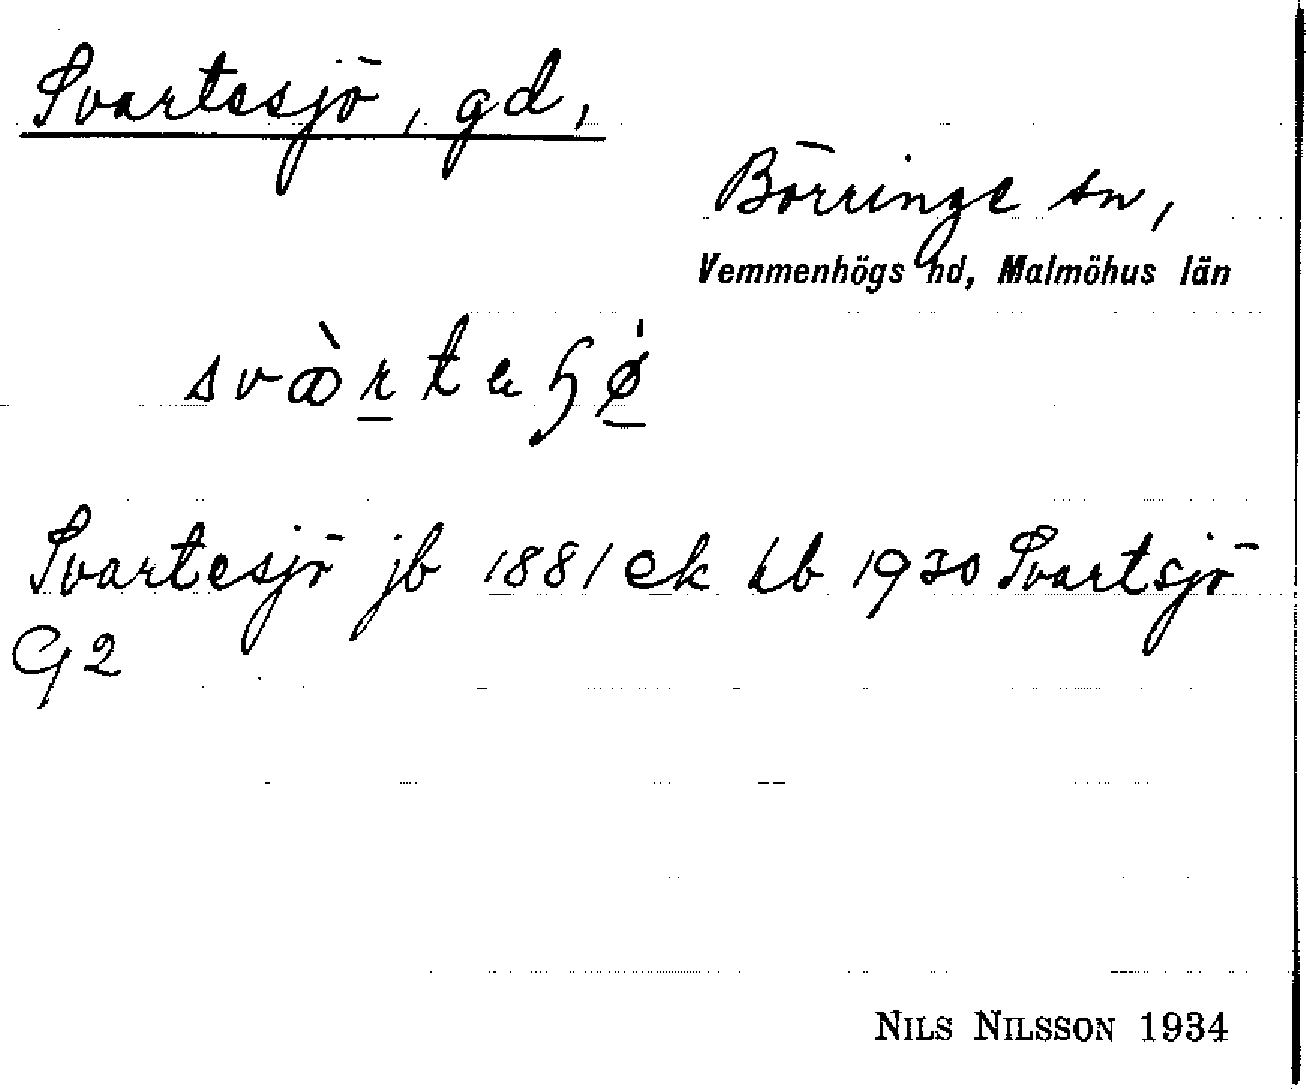 Svartesjö, gd,
Börringe sn,
Vemmenhögs hd, Malmöhus län
Svartesjö jb 1881 ek kb 1930 Svartsjö
G 2
NILS NILSSON 1934